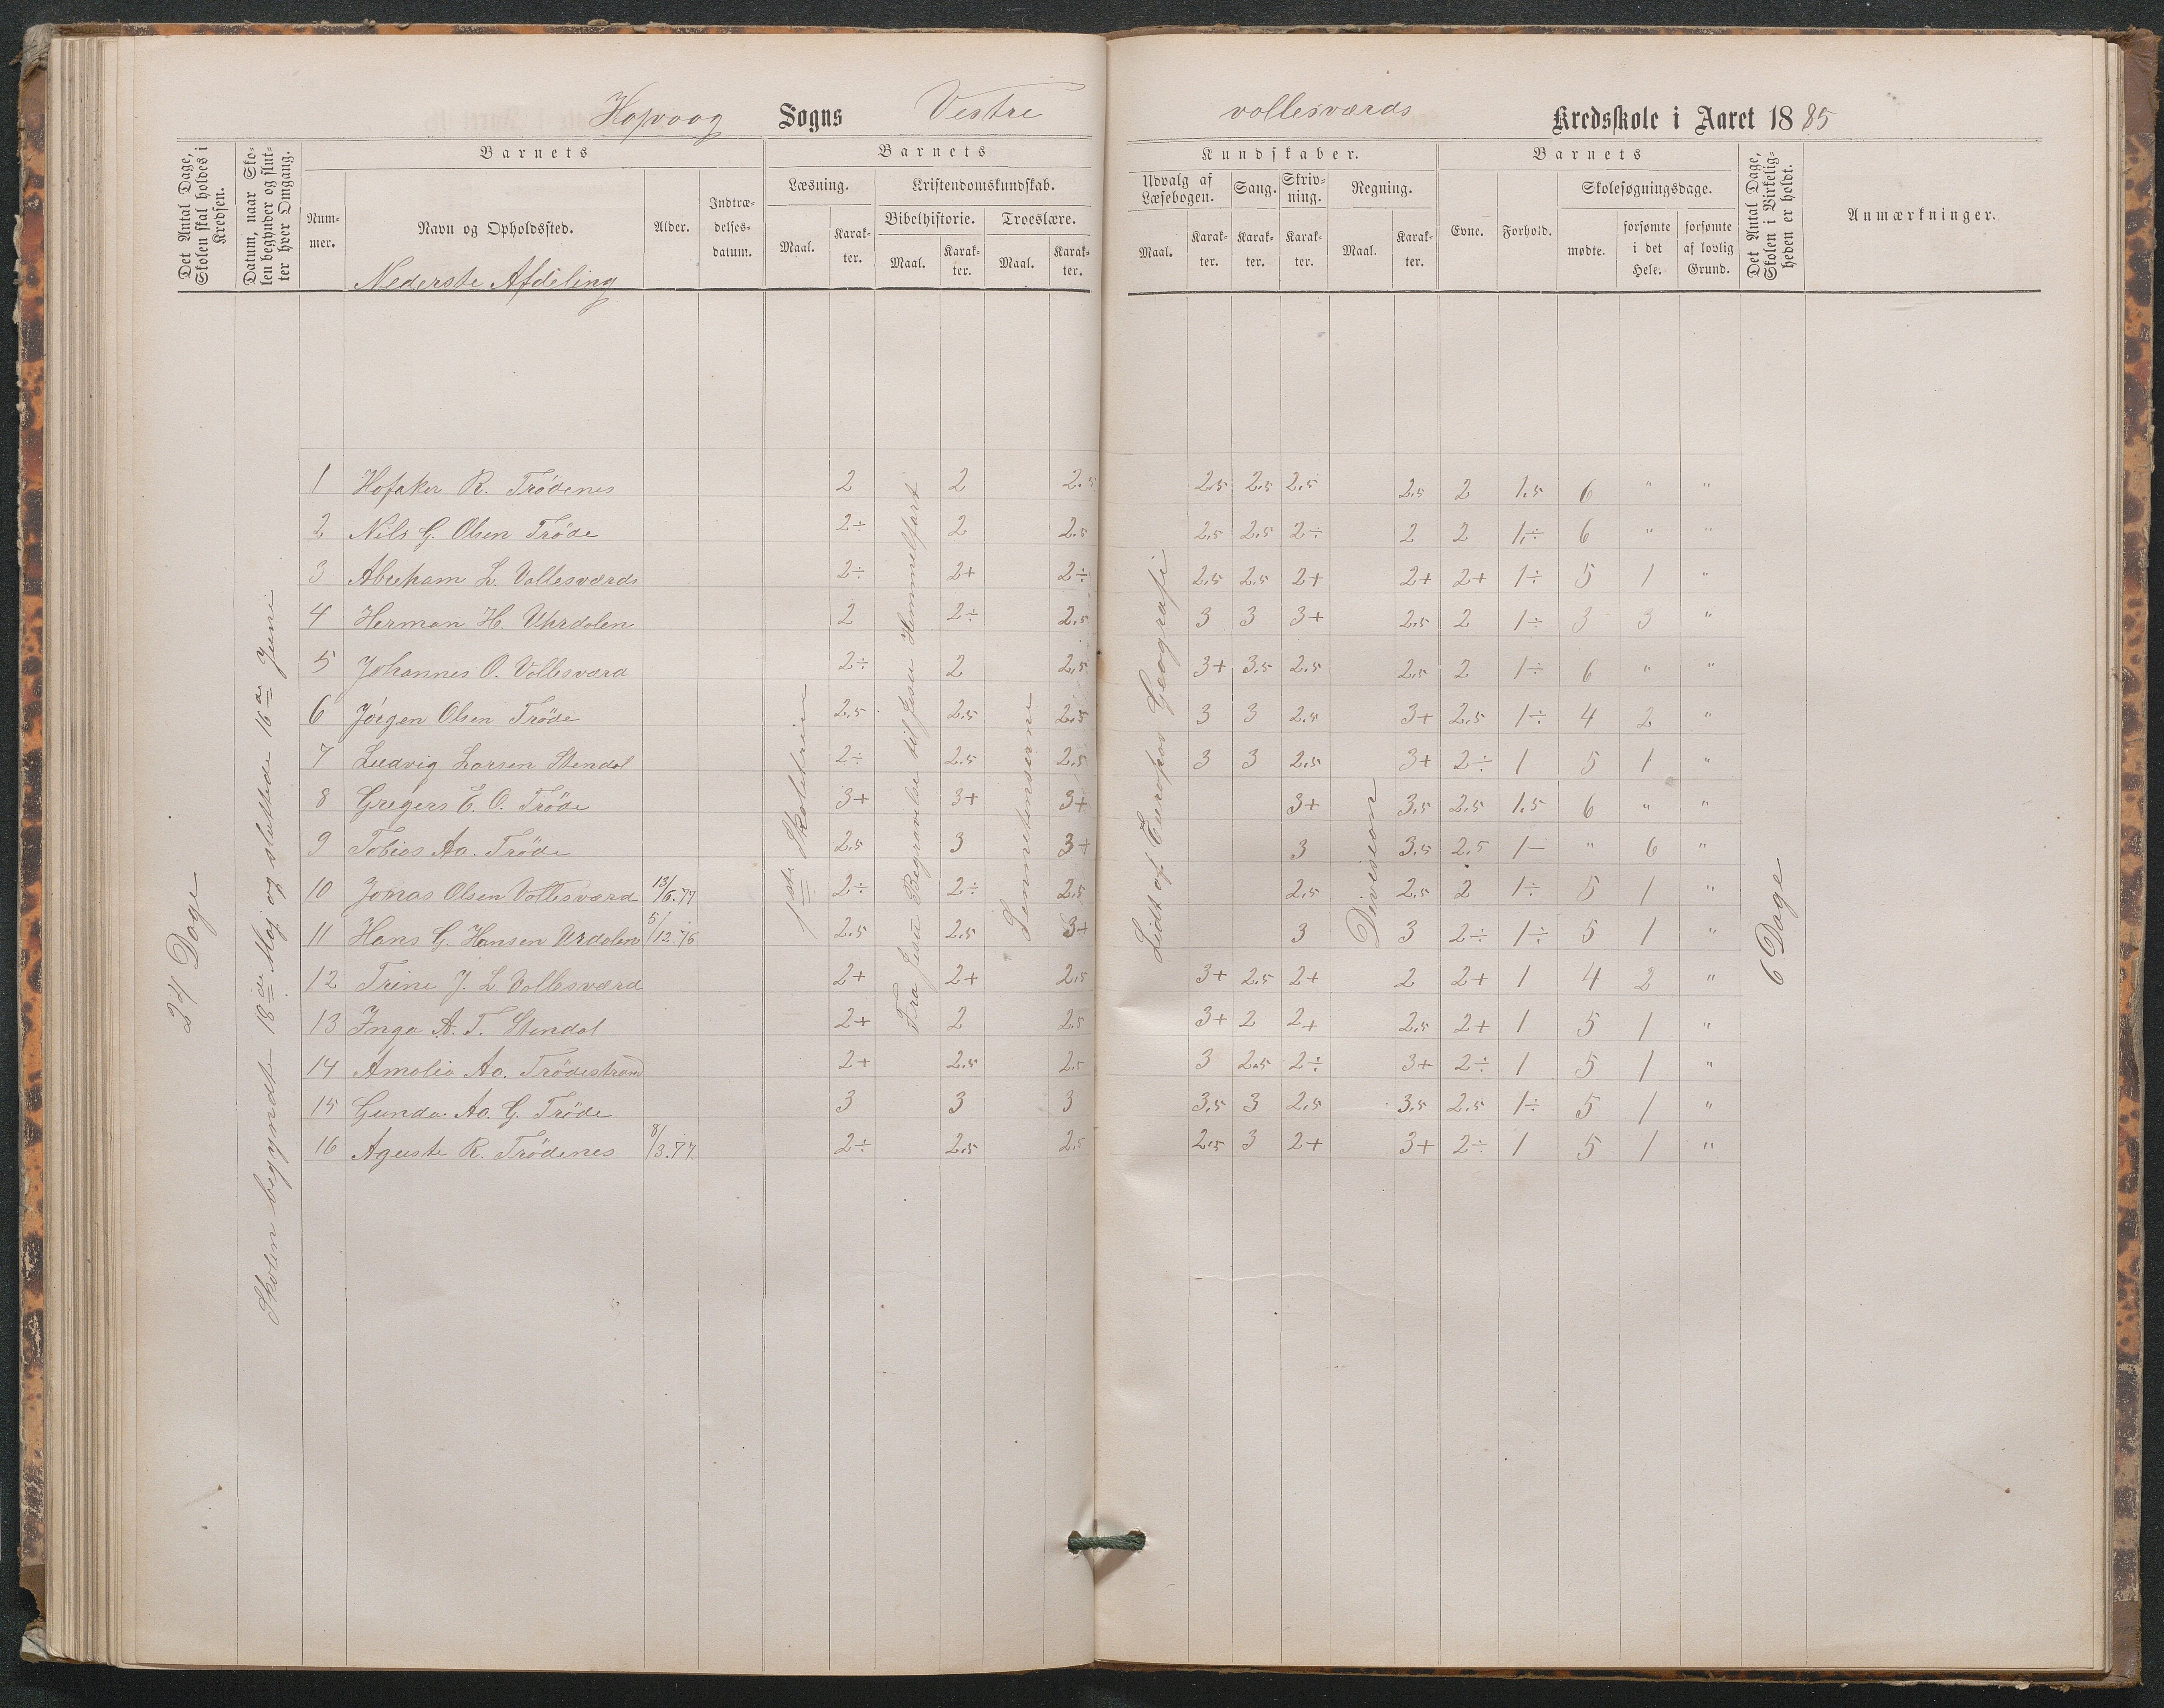 Høpvaag Sogns Vestre vollesværds Kredsskole i Aaret 1885
Det Antal Dage, Skolen skal holdes i Kredsen.
Datum, naar Skolen begynder og slutter hver Omgang.
Barnets
Nummer.
Navn og Opholdssted.
Nederste Afdeling
Alder.
Indtrædelses-datum.
Barnets
Læsning.
Maal.
Karakter.
Kristendomskundskab.
Bibelhistorie.
Maal.
Karakter.
Troeslære.
Maal.
Karakter.
Kundskaber.
Udvalg af Læsebogen.
Maal.
Karakter.
Sang.
Karakter.
Skrivning.
Karakter.
Regning.
Maal.
Karakter.
Barnets
Evne.
Forhold.
Skolesøgningsdage.
mødte.
forsømte i det Hele.
forsømte af lovlig Grund.
Det Antal Dage, Skolen i Virkeligheden er holdt.
Anmærkninger.
24 Dage
Skolen begyndte 18de Maj og sluttede 16de Juni
1ste Skoletrin
Fra Jesu Begravelse til Jesu Himmelfart
Lidt af Europas Geografi
Division
6 Dage
1 Hofaker R. Trødenes 2 2 2.5 2.5 2.5 2.5 2.5 2 1.5 6 " "
2 Nils G. Olsen Trøde 2÷ 2 2.5 2.5 2.5 2÷ 2 2 1.÷ 6 " "
3 Abreham L. Vollesværds 2÷ 2+ 2÷ 2.5 2.5 2+ 2+ 2+ 1÷ 5 1 "
4 Herman H. Uhrdalen 2 2÷ 2.5 3 3 3+ 2.5 2 1÷ 3 3 "
5 Johannes O. Vollesværd 2÷ 2 2.5 3+ 3.5 2.5 2.5 2 1÷ 6 " "
6 Jørgen Olsen Trøde 2.5 2.5 2.5 3 3 2.5 3+ 2.5 1÷ 4 2 "
7 Ludvig Larsen Stendal 2÷ 2.5 2.5 3 3 2.5 3+ 2÷ 1 5 1 "
8 Gregers E. O. Trøde 3+ 3+ 3+ 3+ 3.5 2.5 1.5 6 " "
9 Tobias Aa. Trøde 2.5 3 3+ 3 3.5 2.5 1- " 6 "
10 Jonas Olsen Vollesværd 13/6.77 2÷ 2÷ 2.5 2.5 2.5 2 1÷ 5 1 "
11 Hans G. Hansen Urdalen 5/12.76 2.5 2.5 3+ 3 3 2÷ 1÷ 5 1 "
12 Trine J. L. Vollesværd 2+ 2+ 2.5 3+ 2.5 2+ 2 2+ 1 4 2 "
13 Inga A. T. Stendal 2+ 2 2.5 3+ 2 2+ 2.5 2+ 1 5 1 "
14 Amalia Aa. Trødestrand 2+ 2.5 2.5 3 2.5 2÷ 3+ 2÷ 1 5 1 "
15 Gunda Aa. G. Trøde 3 3 3 3.5 3 2.5 3.5 2.5 1÷ 5 1 "
16 Aguste R. Trødenes 8/3.77 2÷ 2.5 2.5 2.5 3 2+ 3+ 2÷ 1 5 1 "